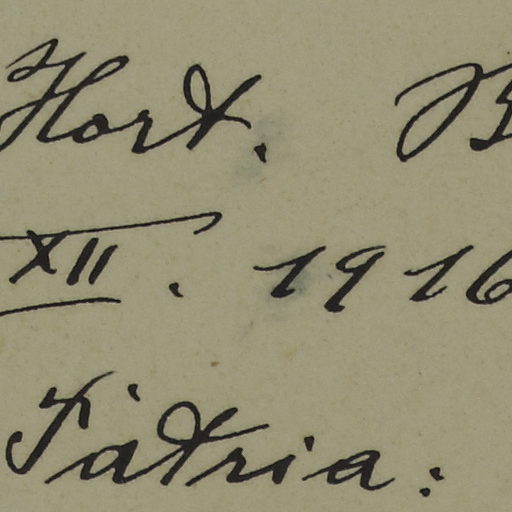 Hort. B
XII. 1916
Patria: